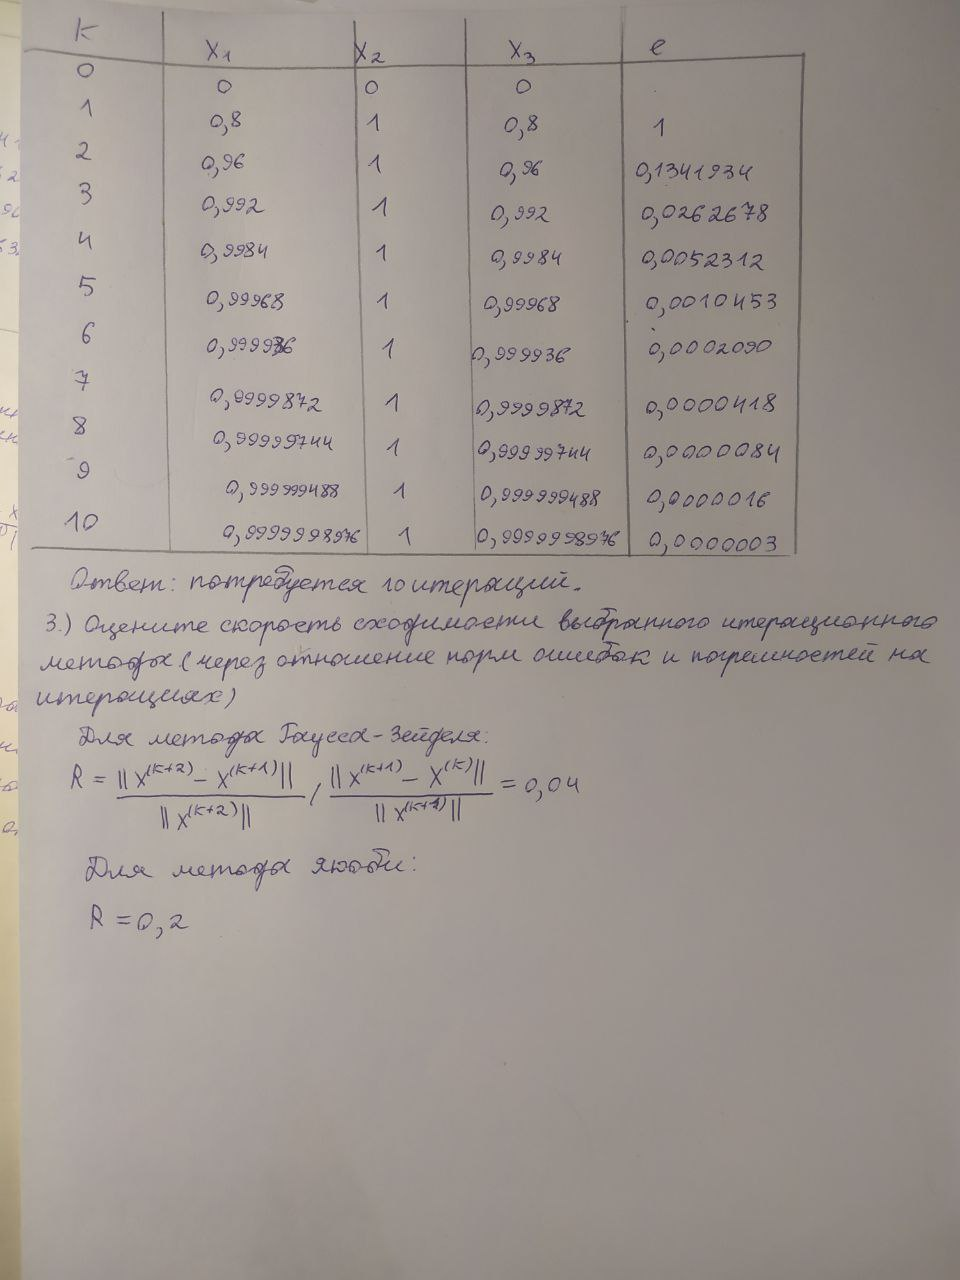 k x₁ x₂ x₃ e
0 0 0 0
1 0,8 1 0,8 1
2 0,96 1 0,96 0,1341934
3 0,992 1 0,992 0,0262678
4 0,9984 1 0,9984 0,0052312
5 0,99968 1 0,99968 0,0010453
6 0,999936 1 0,999936 0,0002090
7 0,9999872 1 0,9999872 0,0000418
8 0,99999744 1 0,99999744 0,0000084
9 0,999999488 1 0,999999488 0,0000016
10 0,9999998976 1 0,9999998976 0,0000003
Ответ: потребуется 10 итераций.
3.) Оцените скорость сходимости выбранного итерационного
метода (через отношение норм ошибок и погрешностей на
итерациях)
Для метода Гаусса-Зейделя:
R = ||x^(k+2) - x^(k+1)|| / ||x^(k+2)|| / ||x^(k+1) - x^(k)|| / ||x^(k+1)|| = 0,04
Для метода якоби:
R = 0,2